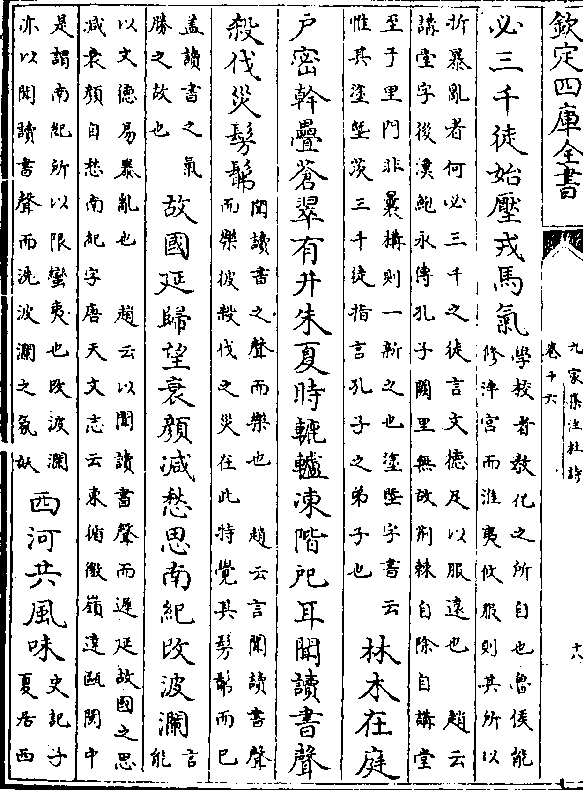 欽定四庫全書
九家集注杜詩
卷十六
十六
必三千徒始壓戎馬氣
學校者教化之所自也魯侯能
修泮宮而淮夷攸服則其所以
折暴亂者何必三千之徒言文德足以服遠也 趙云
講堂字後漢鮑永傳孔子闕里無故荆棘自除自講堂
至于里門非曩構則一新之也塗塈字書云
惟其塗塈茨三千徒指言孔子之弟子也
林木在庭
戶密幹疊蒼翠有井朱夏時轆轤凍階戺耳聞讀書聲
殺伐災髣髴
聞讀書之聲而樂也 趙云言聞讀書聲
而樂彼殺伐之災在此特覺其髣髴而已
蓋讀書之氣
勝之故也
故國延歸望衰顔減愁思南紀改波瀾
言
能
以文德易暴亂也 趙云以聞讀書聲而遲延故國之思
减衰顔自愁南紀字唐天文志云東循徼嶺達甌閩中
是謂南紀所以限蠻夷也改波瀾
亦以聞讀書聲而洗波瀾之氛妖
西河共風味
史記子
夏居西